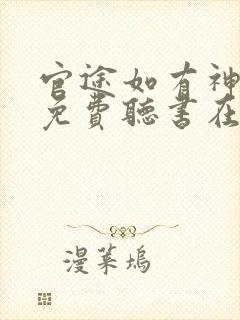 官途如有神
免費聽書在
漫菜塢